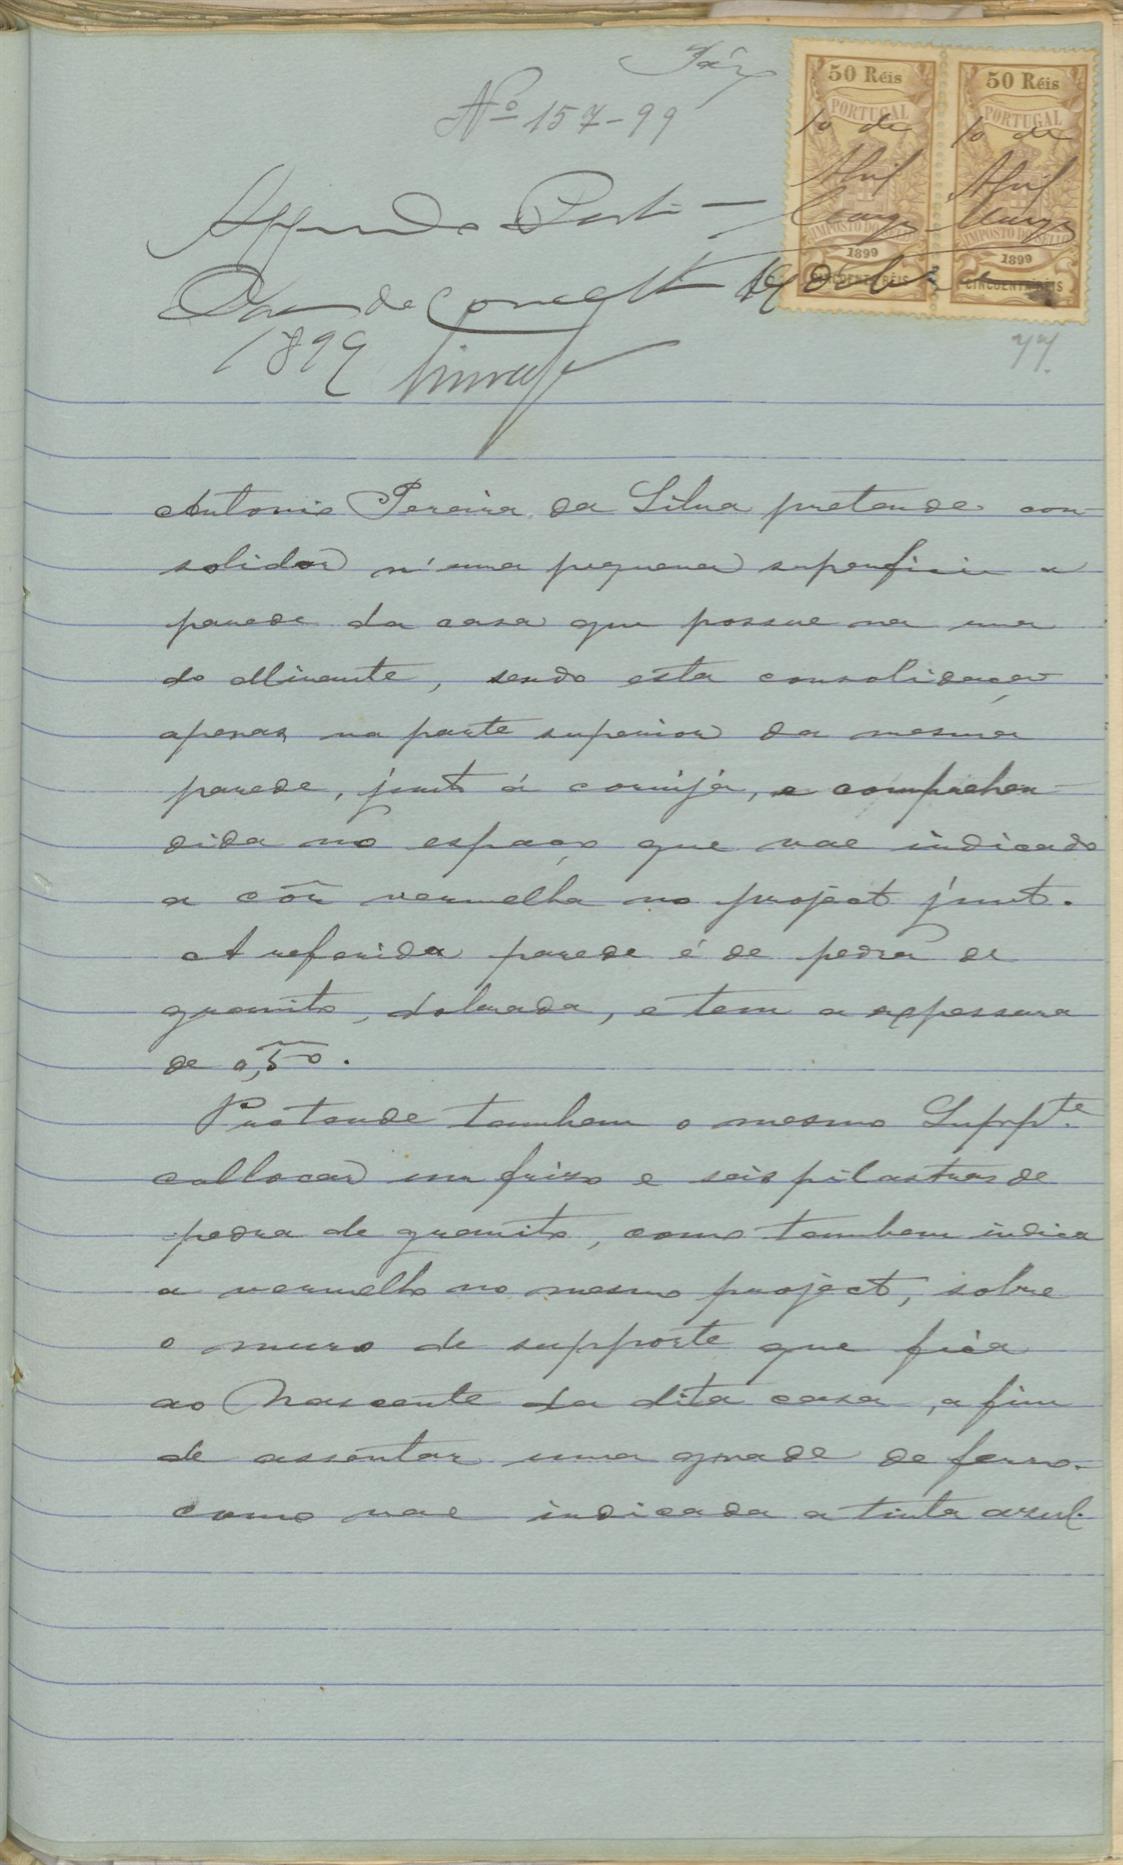 Nº 157-99
50 Réis
50 Réis
PORTUGAL
PORTUGAL
10 de
10 de
Abril
Abril
IMPOSTO DO SELLO
IMPOSTO DO SELLO
1899
1899
CINCOENTA RÉIS
CINCOENTA RÉIS
Approvado Porto
de
1899
77
Antonio Pereira da Silva pretende con-
solidar n'uma pequena superficie a
parede da casa que possue na rua
do Mirante, sendo esta consolidação
apenas na parte superior da mesma
parede, junto á cornija, e comprehen-
dida no espaço que vae indicado
a côr vermelha no projecto junto.
A referida parede é de pedra de
granito, dobrada, e tem a espessura
de 0,m50.
Pretende tambem o mesmo Suppte.
collocar um frizo e seis pilastras de
pedra de granito, como tambem indica
a vermelho no mesmo projecto, sobre
o muro de supporte que fica
ao Nascente da dita casa, a fim
de assentar uma grade de ferro
como vae indicada a tinta azul.